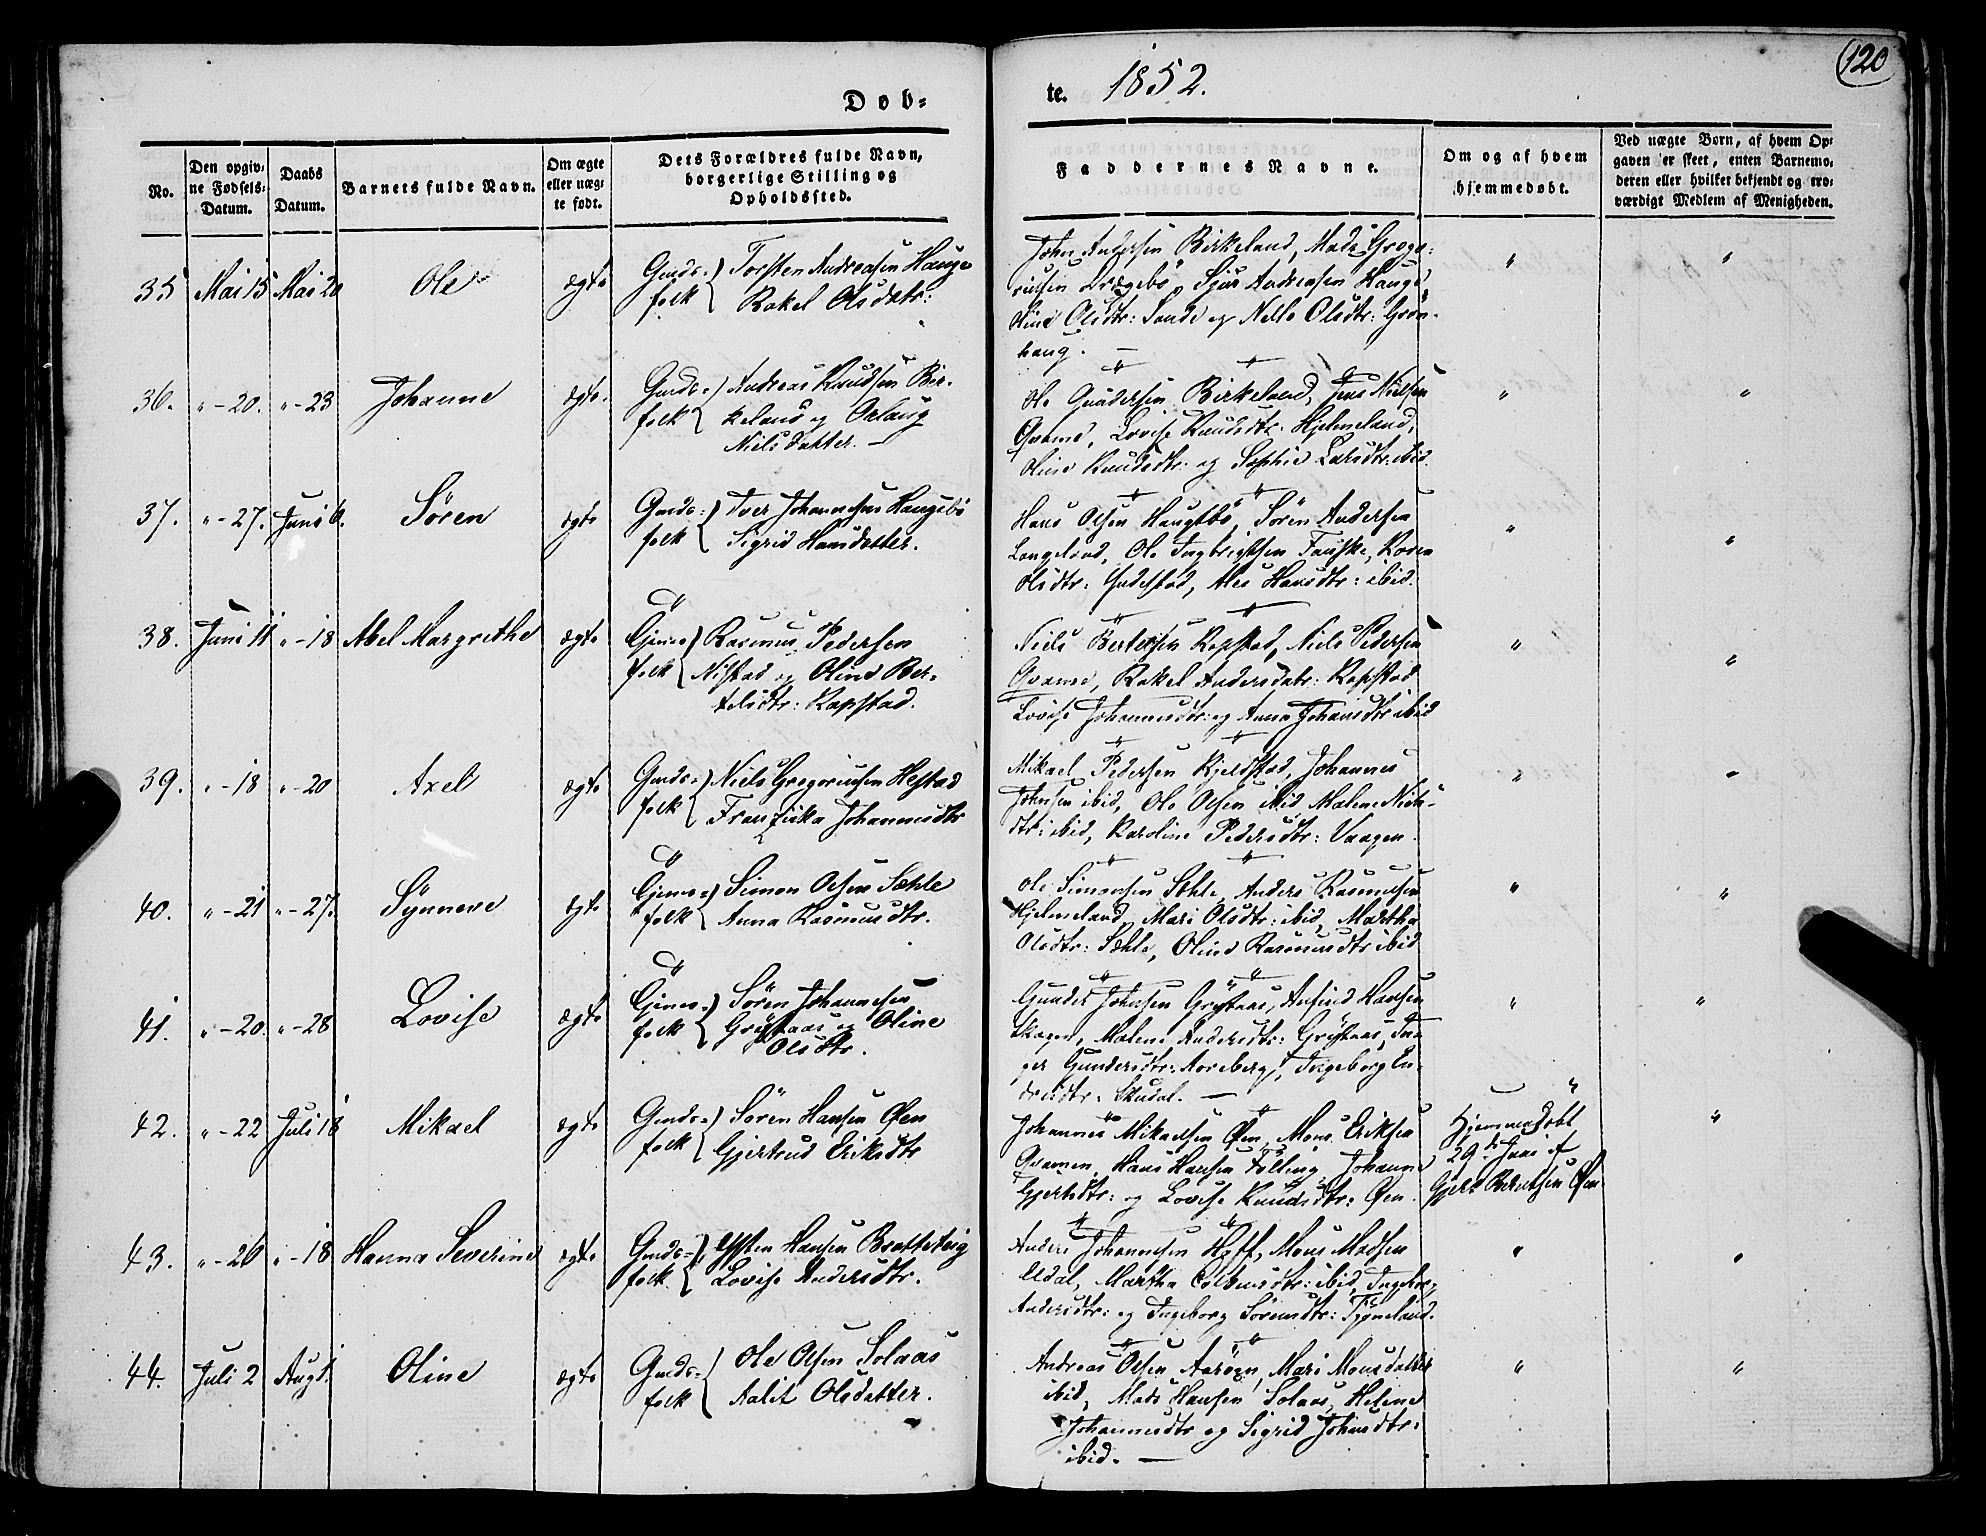 Døb-
te. 1852.
120
No.
Den opgiv-
ne Fødsels-
Datum.
Daabs
Datum.
Barnets fulde Navn.
Om ægte
eller uæg-
te født.
Dets Forældres fulde Navn,
borgerlige Stilling og
Opholdssted.
Faddernes Navne.
Om og af hvem
hjemmedøbt.
Ved uægte Børn, af hvem Op-
gaven er skeet, enten Barnemo-
deren eller hvilket bekjendt og tro-
værdigt Medlem af Menigheden.
35 Mai 15 Mai 20 Ole ægte
Gmds- folk { Torsten Andreasen Hauge
Rakel Olsdatr:
John Andersen Birkeland, Mads Grego-
riusen Drægebø, Sjur Andreasen Hauge,
Oline Olsdtr: Sande og Nille Olsdtr: Grøn-
haug. —
" "
36. "-20. "-23 Johanne ægte.
Gmds- folk { Andreas Knudsen Bir-
keland og
Nielsdatter. —
Ole Gundersen Birkeland, Jens Nielsen
Qvamme, Lovise Knudsdtr: Hjelmeland,
Oline Knudsdtr: og Sophie Larsdtr: ibid.
" "
37. "-27. Juni 6. Søren ægte
Gmds- folk { Iver Johannesen Haugsbø
Sigrid Hansdatter.
Hans Olsen Haugsbø, Søren Andersen
Ole Ingbrigtsen Fauske, Karen
Olsdtr: Hansdtr: ibid.
" "
38. Juni 11 "-18 Abel Margrethe ægte
Gjms- folk { Rasmus Pedersen
Nistad og Oline Ber-
telsdtr: Rapstad.
Niels Bertelsen Rapstad, Niels Pedersen
Qvamme, Rakel Andersdatr: Rapstad
Lovise Johannesdtr: og Anna Johansdtr ibid
" "
39. "-18 "-20 Axel ægte
Gmds- folk { Niels Gregoriusen Hestad
Franziska Johannesdtr
Mikael Pedersen Kjelstad, Johannes
Johnsen ibid, Ole Olsen ibid, Malene Niels-
dtr: ibid, Karoline Pedersdtr: Vaagen.
" "
40. "-21 "-27. Synneve ægte
Gjms- folk { Simon Olsen Sæhle
Anna Rasmusdtr.
Ole Simonsen Sæhle, Anders Rasmusen
Hjelmeland, Mari Olsdtr: ibid, Martha
Olsdtr: Sæhle, Oline Rasmusdtr ibid
" "
41. "-20. "-28 Lovise ægte
Gjms- folk { Søren Johannesen
Grytaas og Oline
Olsdtr.
Gunder Johnsen Grytaas, Hansen
Skogen, Malene Andersdtr: Grytaas, In-
ger Gundersdtr: Aareberg, Ingeborg En-
dresdtr: Skudal. —
" "
42. "-22 Juli 18 Mikael ægte
Gmds- folk { Søren Hansen Øen
Gjertrud Eriksdtr
Johannes Mikaelsen Øen, Mons Eriksen
Qvammen, Hans Hansen Tølling, Johanne
Gjertsdtr: og Lovise Knudsdtr: Øen.
Hjemmedøbt
29de Juni af
Gjert Berntsen Øen
"
43. "-26 "-18 Hanna Severine ægte
Gmds- folk { Hansen Bratteteig
Lovise Andersdtr.
Anders Johannesen Hoff, Mons Madsen
Udal, Martha ibid, Ingebor
Andersdtr: og Ingeborg Sørensdtr: Tyneland.
" "
44. Juli 2 Aug 1. Oline ægte
Gmds- folk { Ole Olsen Solaas
Aalit Olsdatter.
Andreas Olsen Aarøen, Mari Monsdatter
ibid, Mads Hansen Solaas, Helene
Johannesdtr og Sigrid Johnsdtr:
ibid. —
" "